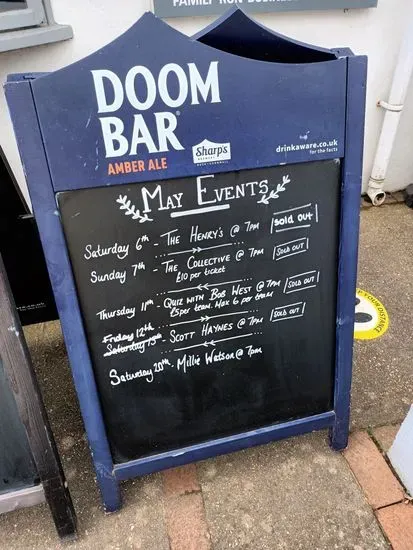 FAMILY RUN BUSINESS
DOOM
BAR®
AMBER ALE
Sharp's
BREWERY
ROCK · CORNWALL
drinkaware.co.uk
for the facts
MAY EVENTS
Saturday 6th - THE HENRY'S @ 7pm sold out
Sunday 7th - THE COLLECTIVE @ 7pm SOLD OUT
£10 per ticket
Thursday 11th - QUIZ WITH BOB WEST @ 7pm SOLD OUT
£5per team Max 6 per team
Friday 12th
Saturday 13th - SCOTT HAYNES @ 7pm SOLD OUT
Saturday 20th - MILLIE WATSON @ 7pm
YOUR DISTANCE